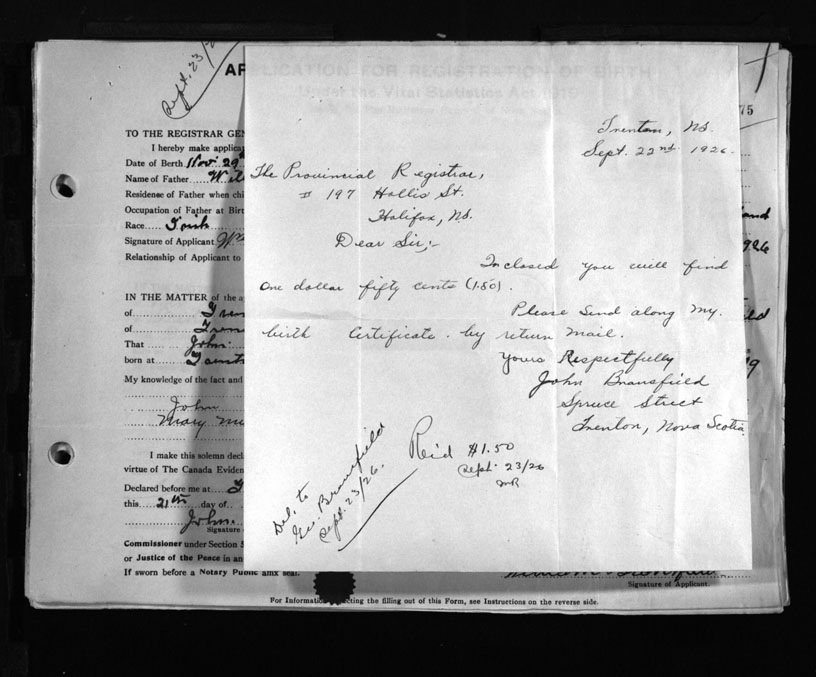 Sept. 23/2
APPLICATION FOR REGISTRATION OF BIRTH
Under the Vital Statistics Act 1919
75
TO THE REGISTRAR GEN
I hereby make applica
Date of Birth Nov. 29th
Name of Father Wil
Residense of Father when chi
Occupation of Father at Birt
Race
Signature of Applicant
Relationship of Applicant to
IN THE MATTER of the a
of
of
That John
born at
My knowledge of the fact and
John
Mary Mu
I make this solemn decl
virtue of The Canada Eviden
Declared before me at T
this 21th day of
John
Signature
Commissioner under Section 5
or Justice of the Peace in an
If sworn before a Notary Public
seal.
Signature of Applicant.
For Information
cting the filling out of this Form, see Instructions on the reverse side.
Trenton, N.S.
Sept. 22nd 1926.
The Provincial Registrar,
197 Hollis St.
Halifax, N.S.
Dear Sir;-
Inclosed you will find
One dollar fifty cents (1.50).
Please Send along My.
birth Certificate. by return Mail.
Yours Respectfully
John Bransfield
Spruce Street
Trenton, Nova Scotia
Rec'd $1.50
Sept. 23/26
MR
Del. to
Geo. Bransfield
Sept. 23/26.